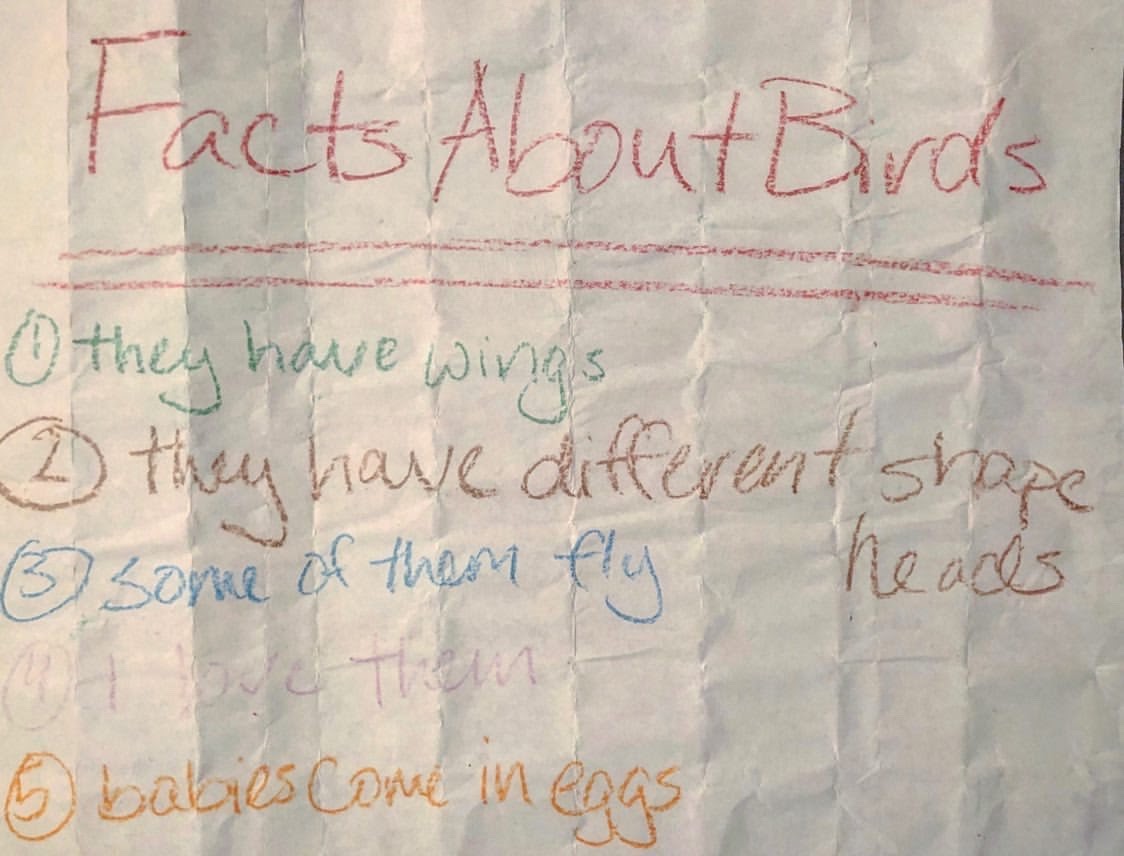 Facts About Birds
① they have wings
② they have different shape
heads
③ some of them fly
④ I love them
⑤ babies Come in eggs